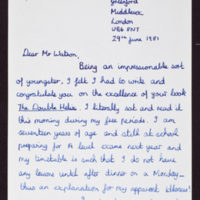 Greenford
Middlesex
London
UB6 8NT
29th June 1981
Dear Mr Watson,
Being an impressionable sort
of youngster, I felt I had to write and
congratulate you on the excellence of your book
The Double Helix. I literally sat and read it
this morning during my free periods. I am
seventeen years of age and still at school
preparing for A level exams next year and
my timetable is such that I do not have
any lessons until after dinner on a Monday...
thus an explanation for my apparent idleness!